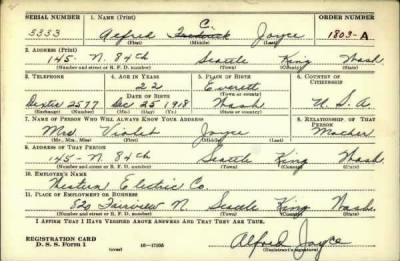 SERIAL NUMBER 1. NAME (Print) ORDER NUMBER
3333 Alfred C Joyce 1803-A
(First) (Middle) (Last)
2. ADDRESS (Print)
145- N. 84th Seattle King Wash.
(Number and street or R. F. D. number) (Town) (County) (State)
3. TELEPHONE 4. AGE IN YEARS 5. PLACE OF BIRTH 6. COUNTRY OF CITIZENSHIP
22 Everett
DATE OF BIRTH (Town or county)
Dexter 2577 Dec 25 1918 Wash U.S.A.
(Exchange) (Number) (Mo.) (Day) (Yr.) (State or country)
7. NAME OF PERSON WHO WILL ALWAYS KNOW YOUR ADDRESS 8. RELATIONSHIP OF THAT PERSON
Mrs Violet Joyce Mother
(Mr., Mrs., Miss) (First) (Middle) (Last)
9. ADDRESS OF THAT PERSON
145- N. 84th Seattle King Wash.
(Number and street or R. F. D. number) (Town) (County) (State)
10. EMPLOYER'S NAME
Western Electric Co.
11. PLACE OF EMPLOYMENT OR BUSINESS
820 Fairview N. Seattle King Wash.
(Number and street or R. F. D. number) (Town) (County) (State)
I AFFIRM THAT I HAVE VERIFIED ABOVE ANSWERS AND THAT THEY ARE TRUE.
REGISTRATION CARD
D. S. S. Form 1 (over) 16-17105 Alfred Joyce
(Registrant's signature)